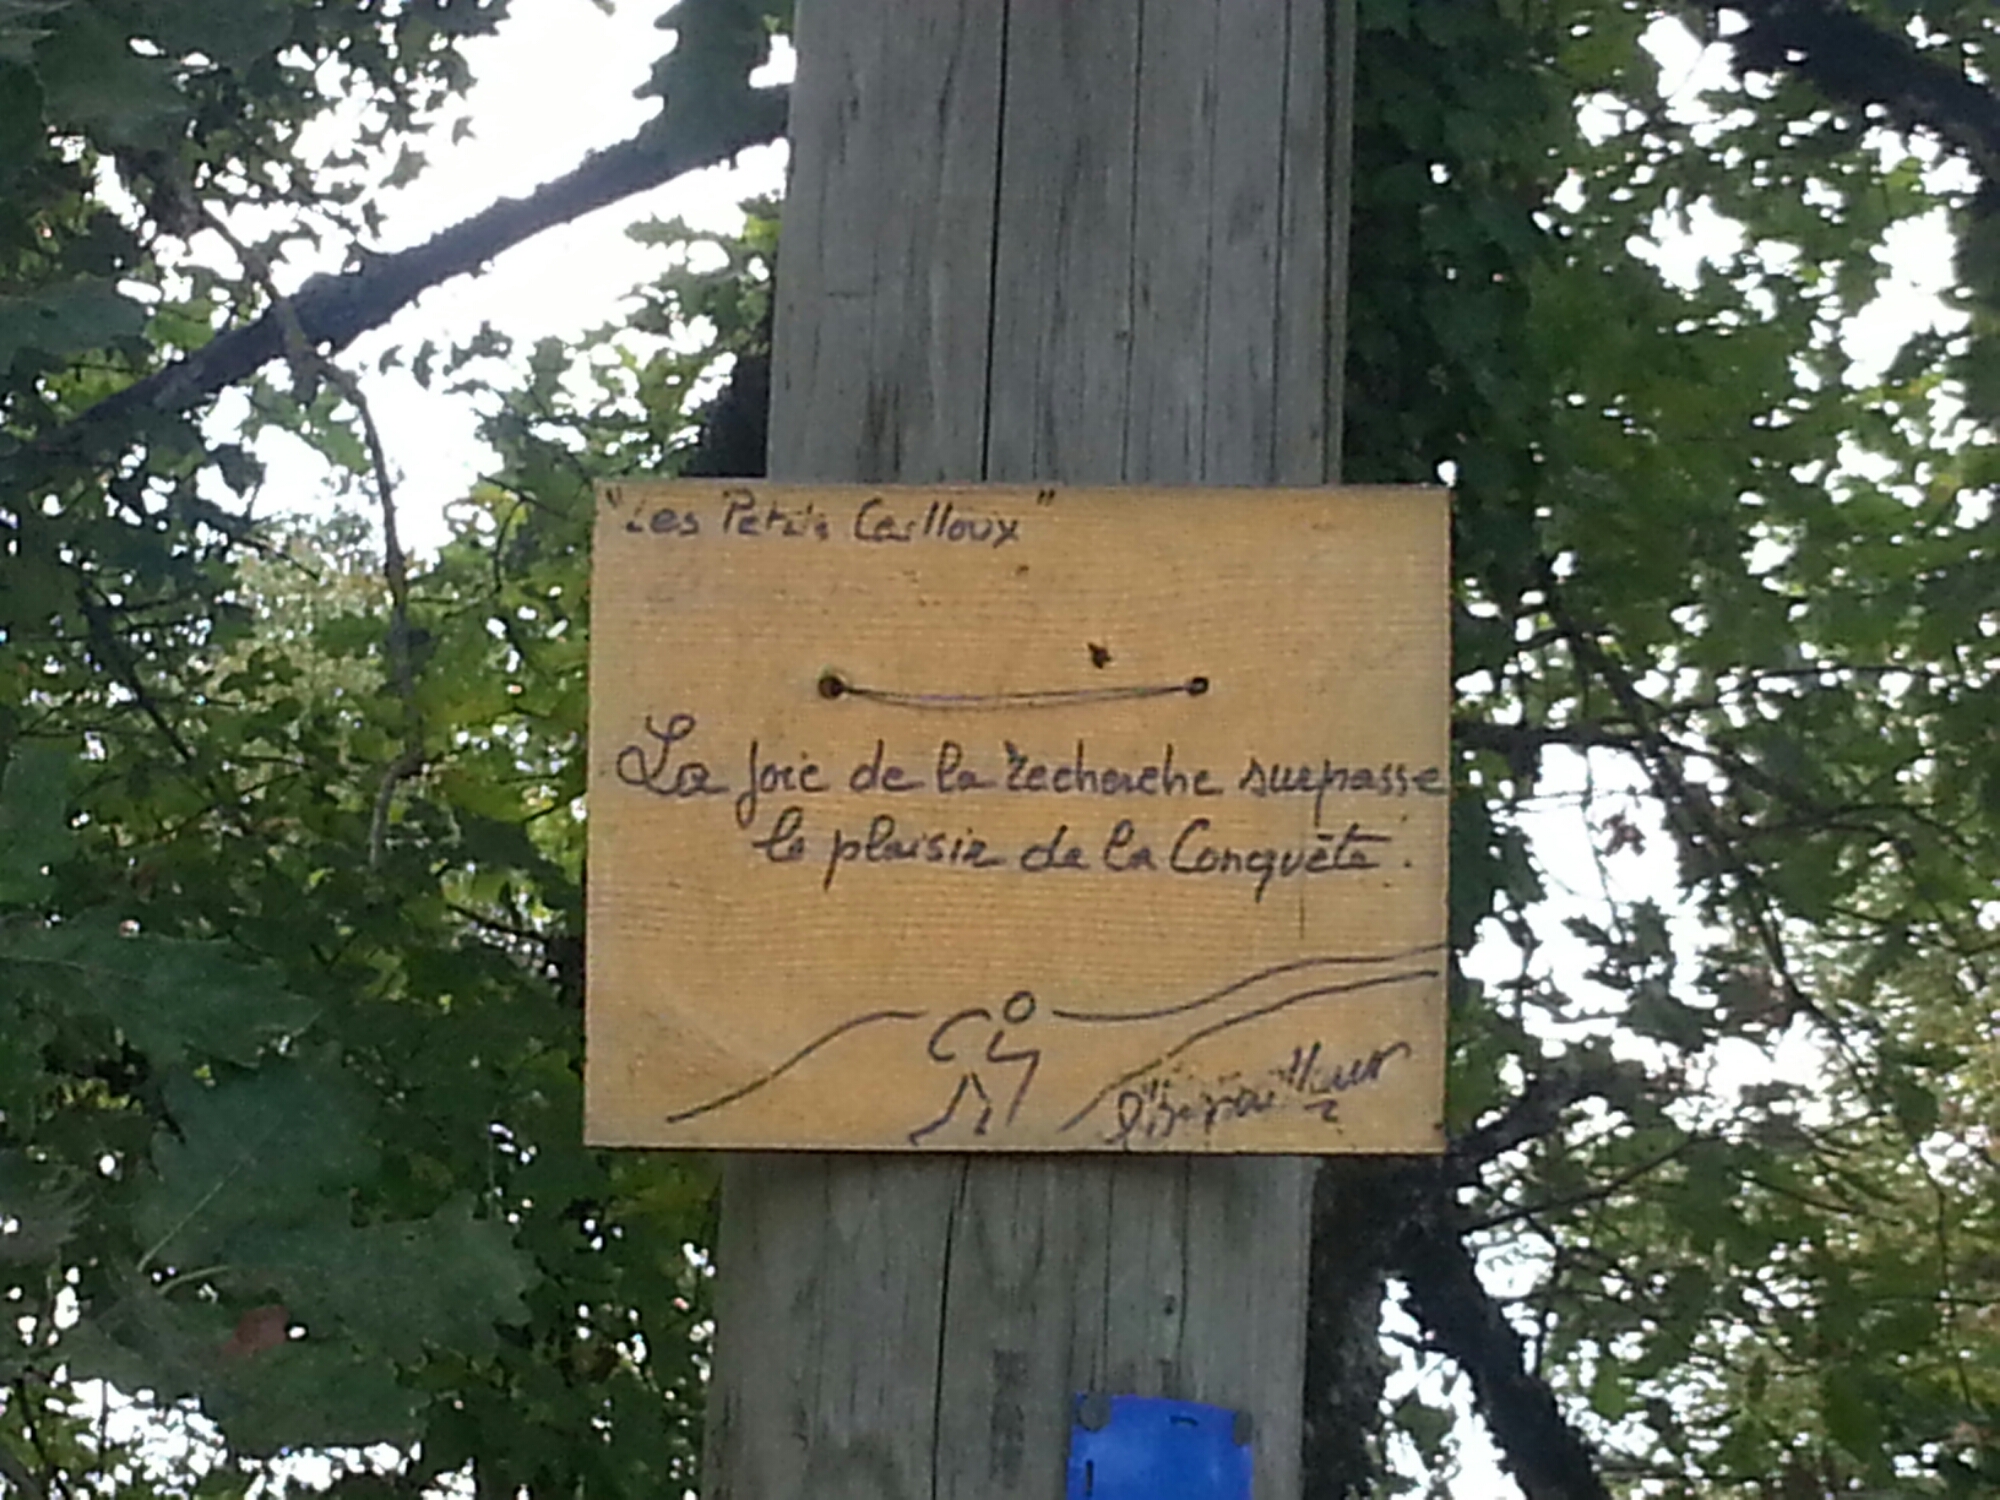 "Les Petits Cailloux"
La joie de la recherche surpasse
le plaisir de la Conquête.